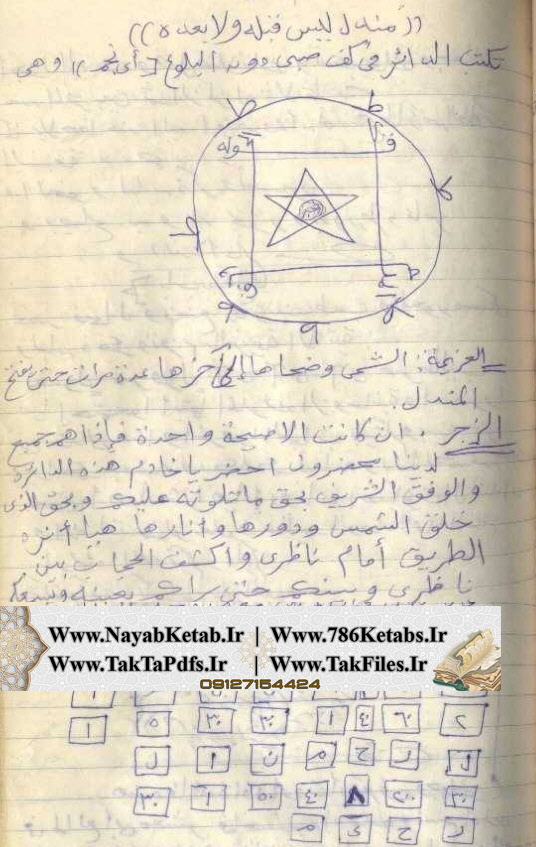 ((مندل ليس قبله ولا بعده))
تكتب الدائر في كف صبي دون البلوغ [أى نجمه)) وهى
قوله
العزيمة: الشمس وضحاها إلى آخرها عدة مرات حتى يفتح
المندل.
الزجر. ان كانت الا صيحة واحدة فإذا هم جميع
لدينا محضرون احضر يا خادم هذه الدائرة
والوفق الشريف بحق ما تلوته عليك وبحق الذى
خلق الشمس ودورها وأنارها هيا أنره
الطريق أمام ناظرى واكشف الحجاب بين
ناظرى وبينكم حتى يراكم بعينه
Www.NayabKetab.Ir | Www.786Ketabs.Ir
Www.TakTaPdfs.Ir | Www.TakFiles.Ir
09127154424
٢ ٦٠ ٤ ١ ٣٠ ٣٠ ٥ ١
ل ر ح م ن ا ل
٣٠ ٢٠٠ ٨ ٤٠ ٥٠ ١ ٣٠
ر ح ى م